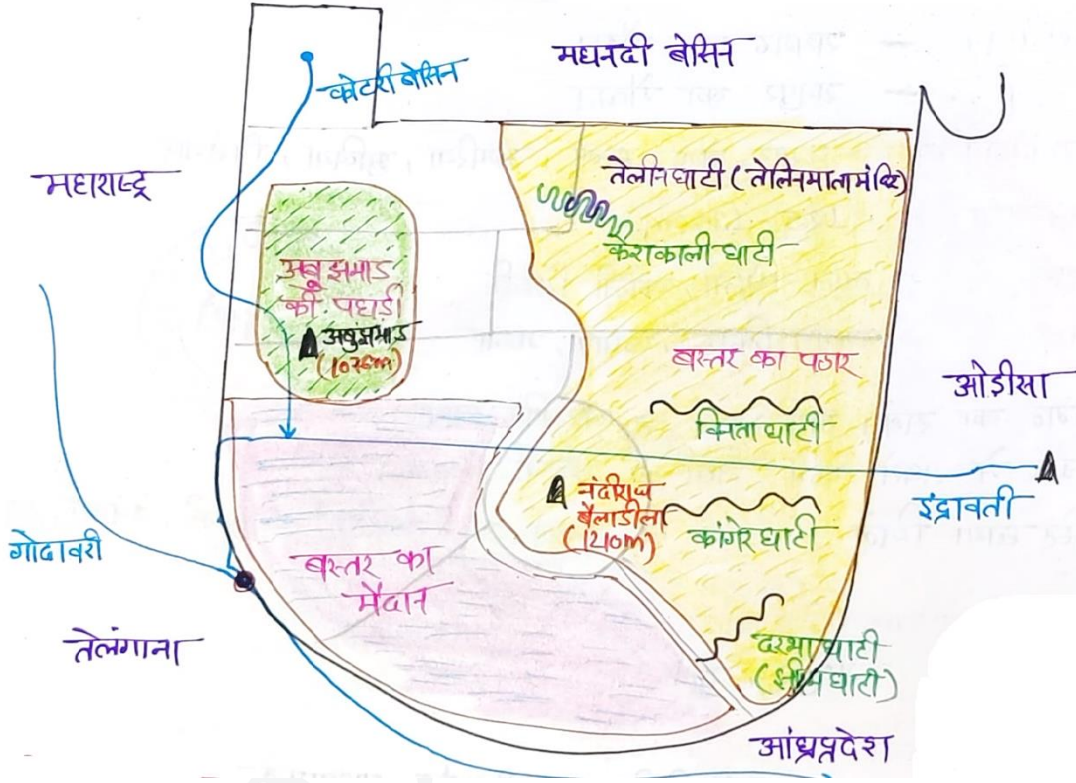 महानदी बेसिन
कोटरी बेसिन
महाराष्ट्र
तेलीनघाटी (तेलिनमाता मंदिर)
केशकाली घाटी
अबुझमाड
की पहाड़ी
अबुझमाड
(1076m)
बस्तर का पठार
ओड़ीसा
बिंताघाटी
नंदीराज
बैलाडीला
(1210m)
कांगेर घाटी
इंद्रावती
गोदावरी
बस्तर का
मैदान
तेलंगाना
दरभा घाटी
(झीरम घाटी)
आंध्रप्रदेश